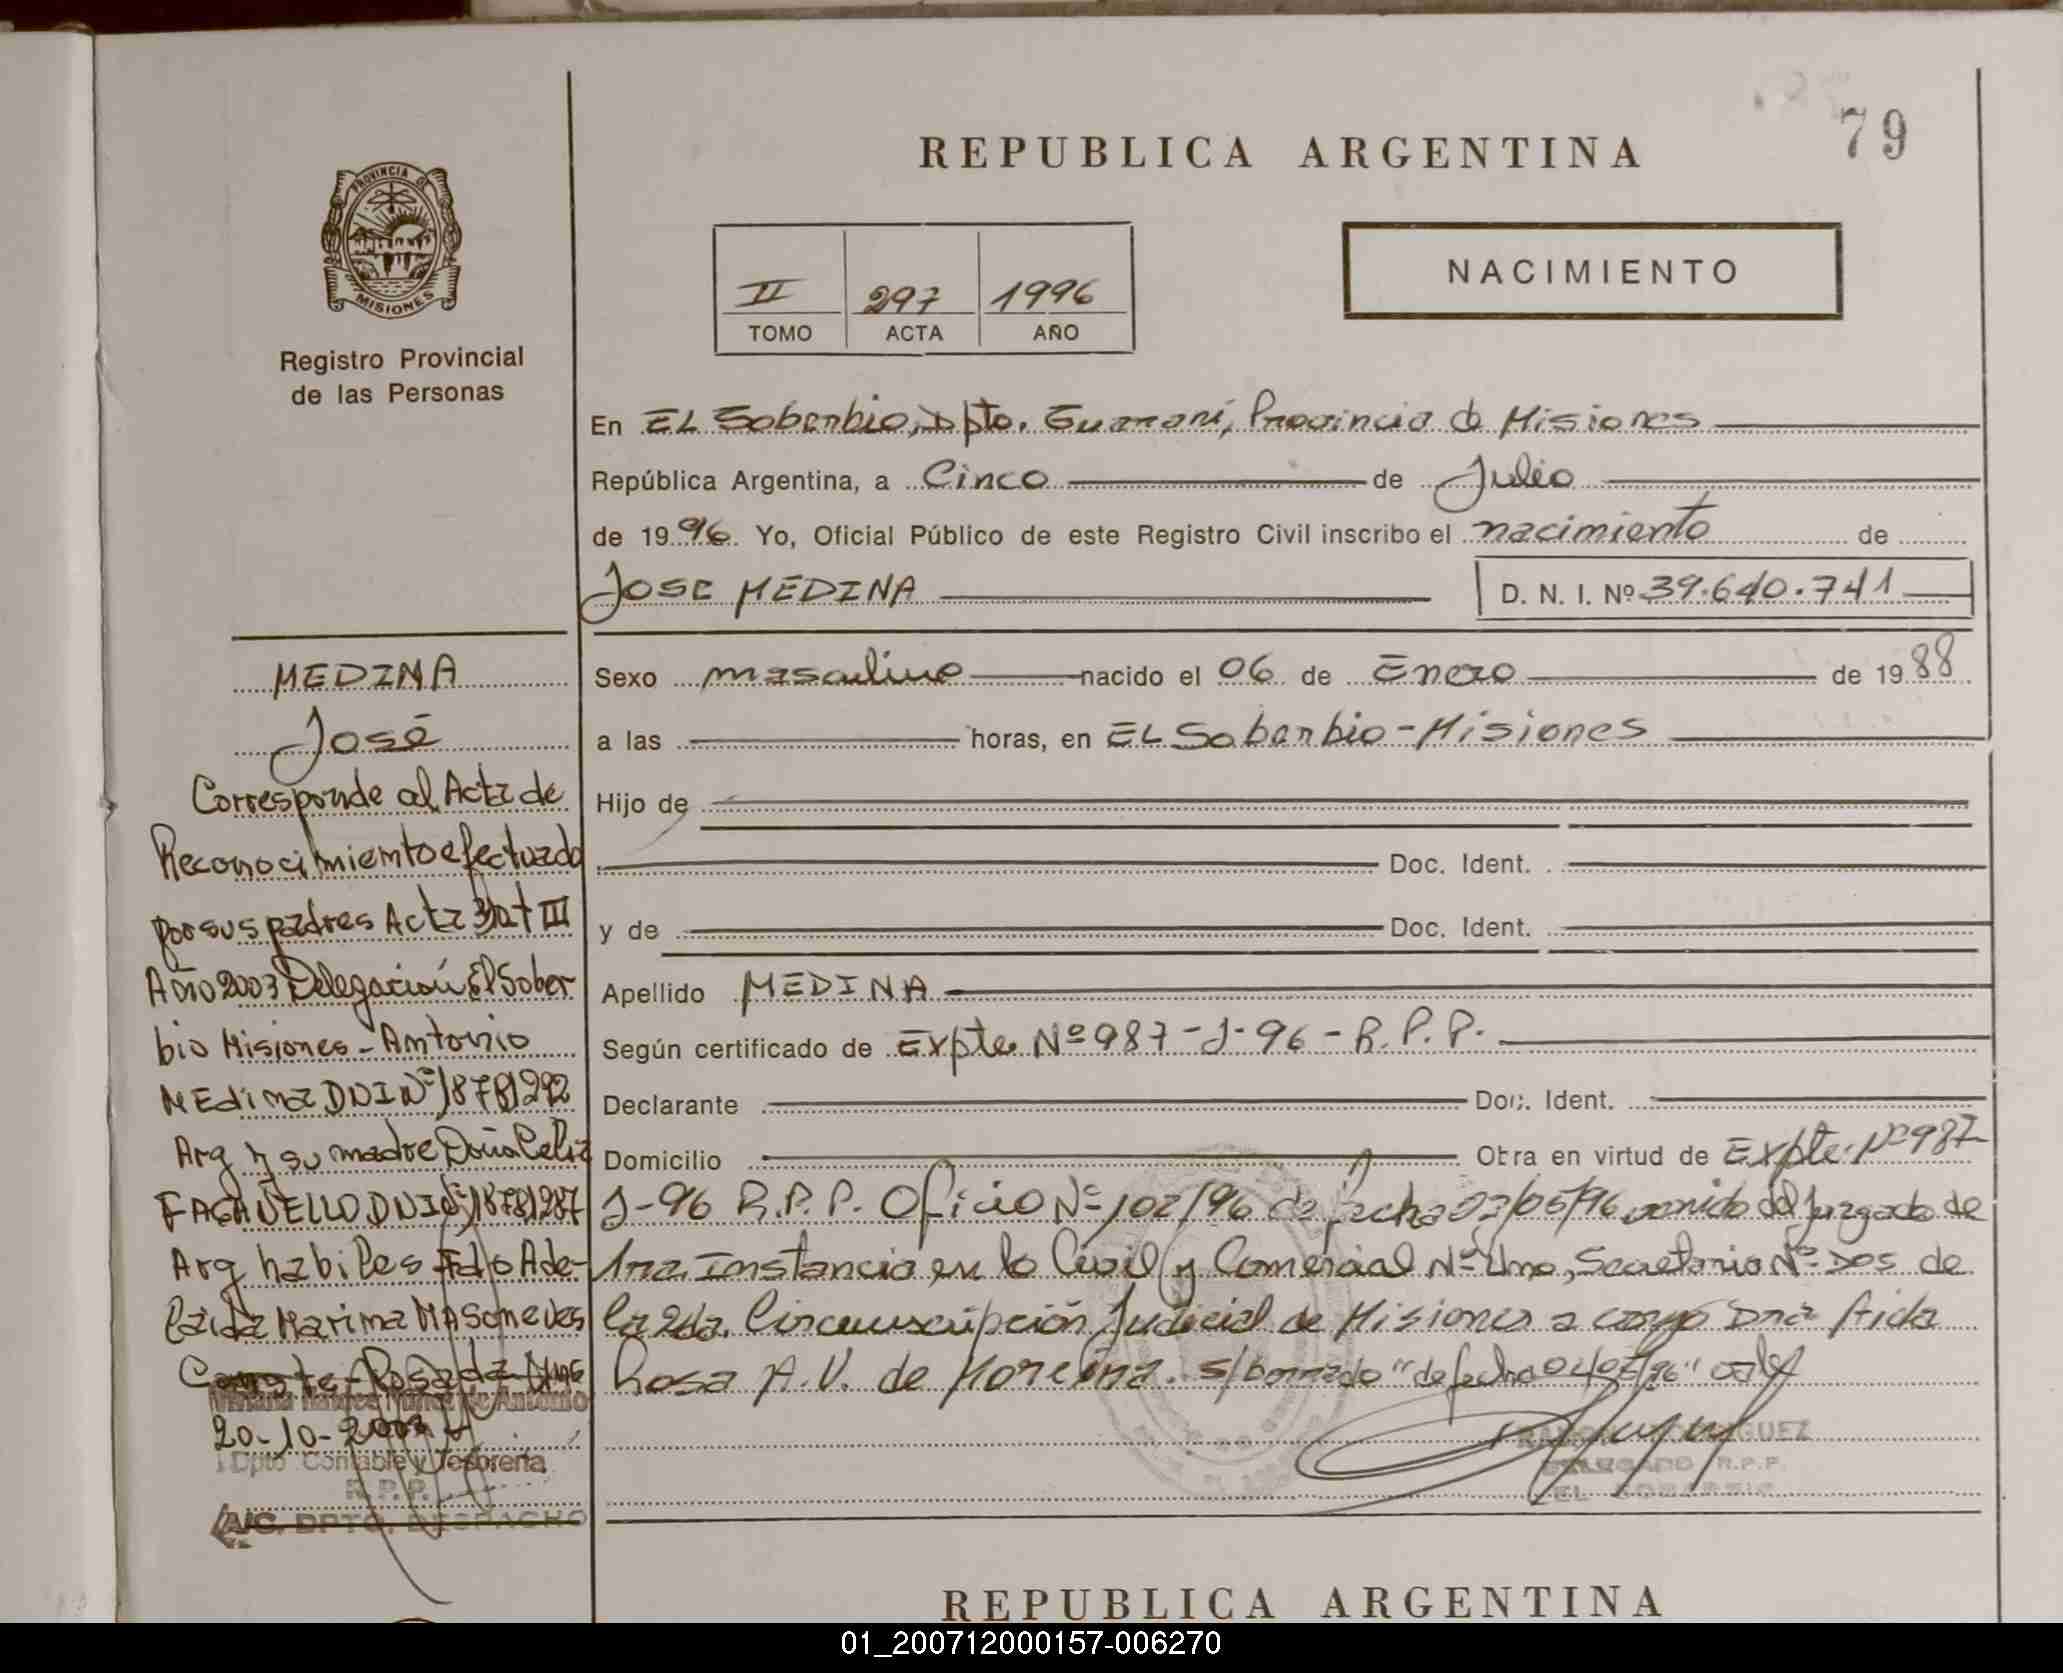 79
REPUBLICA ARGENTINA
NACIMIENTO
II 297 1996
TOMO ACTA AÑO
PROVINCIA DE MISIONES
Registro Provincial
de las Personas
En EL Soberbio, Dpto. Guaraní, Provincia de Misiones
República Argentina, a Cinco de Julio
de 1996. Yo, Oficial Público de este Registro Civil inscribo el nacimiento de
JOSE MEDINA D. N. I. Nº 39.640.741
Sexo masculino nacido el 06 de Enero de 1988
a las horas, en EL Soberbio - Misiones
Hijo de
Doc. Ident.
y de Doc. Ident.
Apellido MEDINA
Según certificado de Expte Nº 987-J-96-R.P.P.
Declarante Doc. Ident.
Domicilio Obra en virtud de Expte. Nº 987
J-96 R.P.P. Oficio Nº 102/96 de fecha 02/05/96 venido del Juzgado de
1ra. Instancia en lo Civil y Comercial Nº Uno, Secretaria Nº Dos de
la 2da. Circunscripción Judicial de Misiones a cargo Dra Aida
Rosa A.V. de Moreira. s/borrado "de fecha 02/05/96" vale
DELEGADO R.P.P.
EL SOBERBIO
MEDINA
José
Corresponde al Acta de
Reconocimiento efectuado
por sus padres Acta t III
Año 2003 Delegación El Sober
bio Misiones - Antonio
MEdina DNI Nº 18781292
Arg y su madre Doña Celia
FAGAÑELLO DNI Nº 18781287
Arg habiles Fdo Ade-
laida Marina
20-10-2003
Dpto Contable y Tesorería
R.P.P.
A/C. DPTO. DESPACHO
REPUBLICA ARGENTINA
01_200712000157-006270